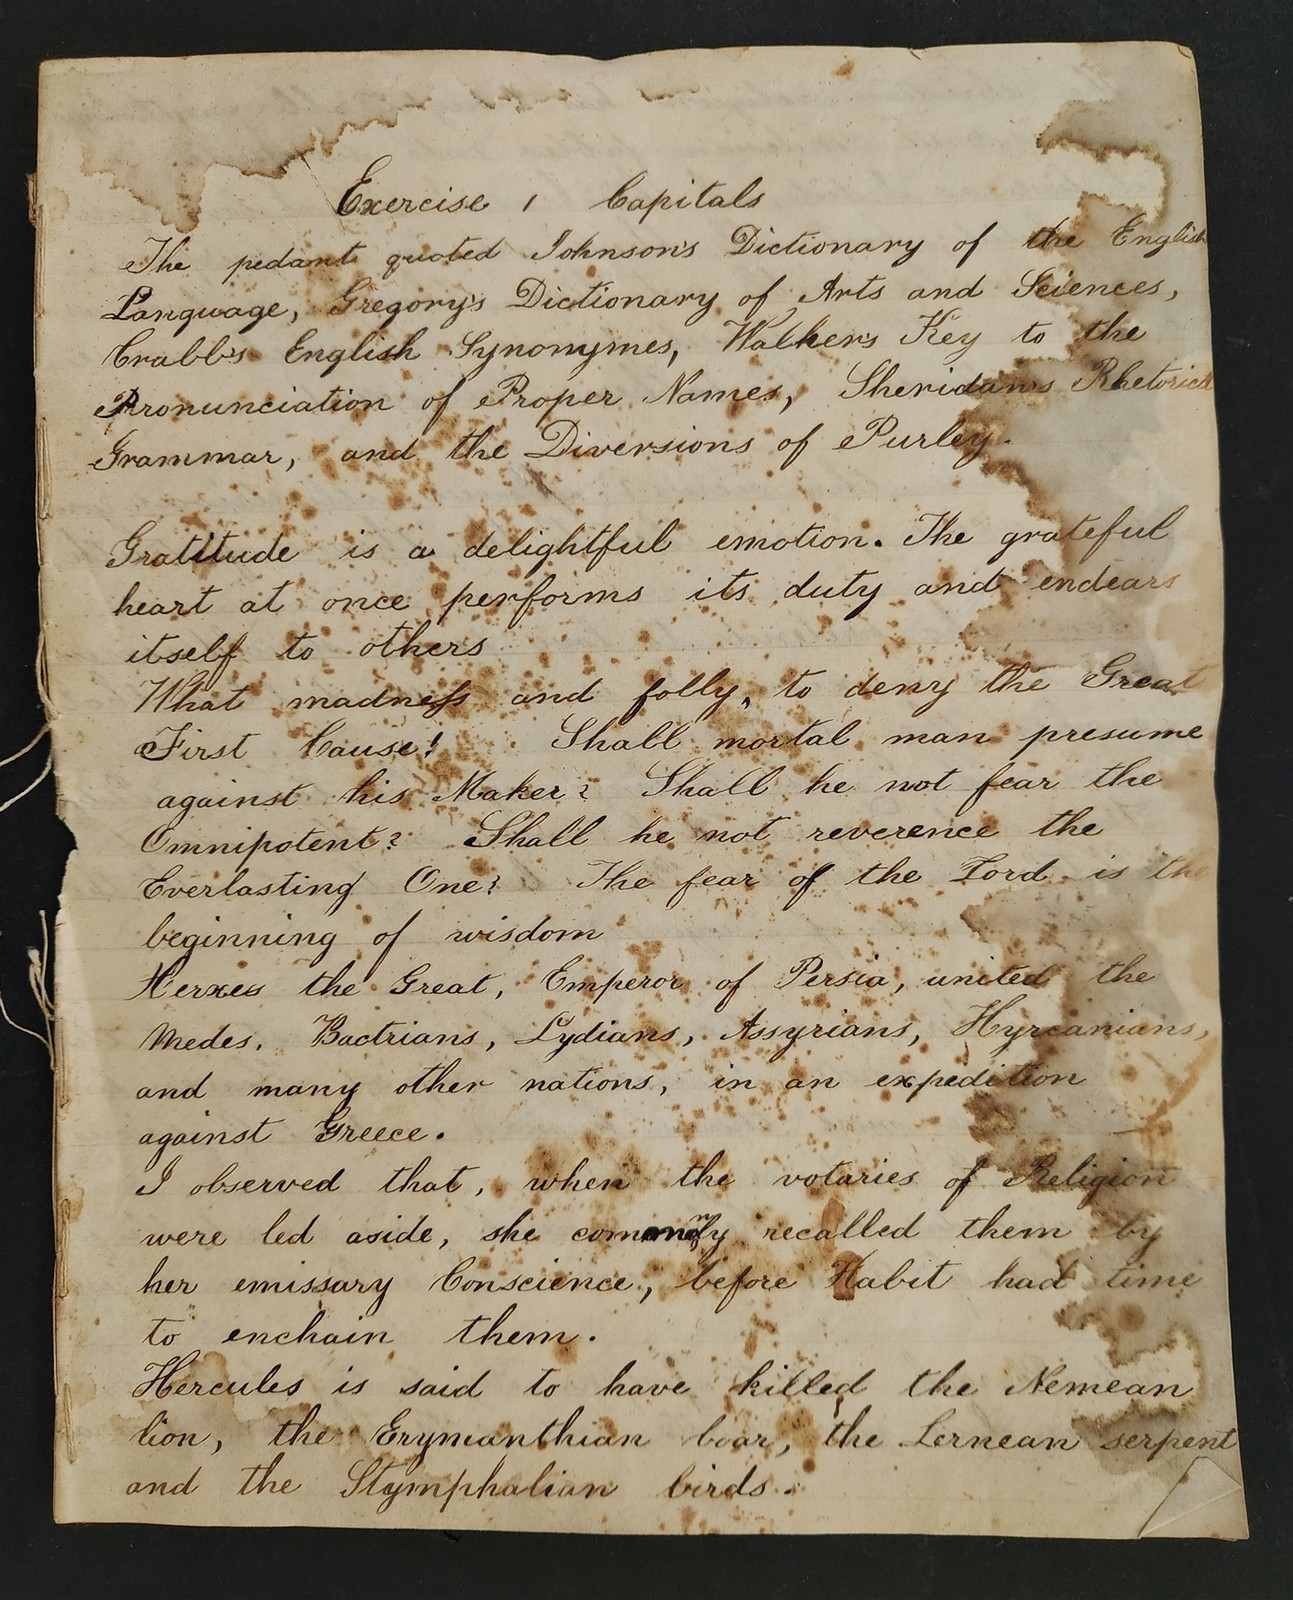 Exercise 1 Capitals
The pedant quoted Johnson's Dictionary of the English
Language, Gregory's Dictionary of Arts and Sciences,
Crabb's English Synonymes, Walker's Key to the
Pronunciation of Proper Names, Sheridan's Rhetorical
Grammar, and the Diversions of Purley.
Gratitude is a delightful emotion. The grateful
heart at once performs its duty and endears
itself to others
What madness and folly, to deny the Great
First Cause! Shall mortal man presume
against his Maker? Shall he not fear the
Omnipotent? Shall he not reverence the
Everlasting One? The fear of the Lord is the
beginning of wisdom
Xerxes the Great, Emperor of Persia, united the
Medes, Bactrians, Lydians, Assyrians, Hyrcanians,
and many other nations, in an expedition
against Greece.
I observed that, when the votaries of Religion
were led aside, she commonly recalled them by
her emissary Conscience, before Habit had time
to enchain them.
Hercules is said to have killed the Nemean
lion, the Erymanthian boar, the Lernean serpent
and the Stymphalian birds.